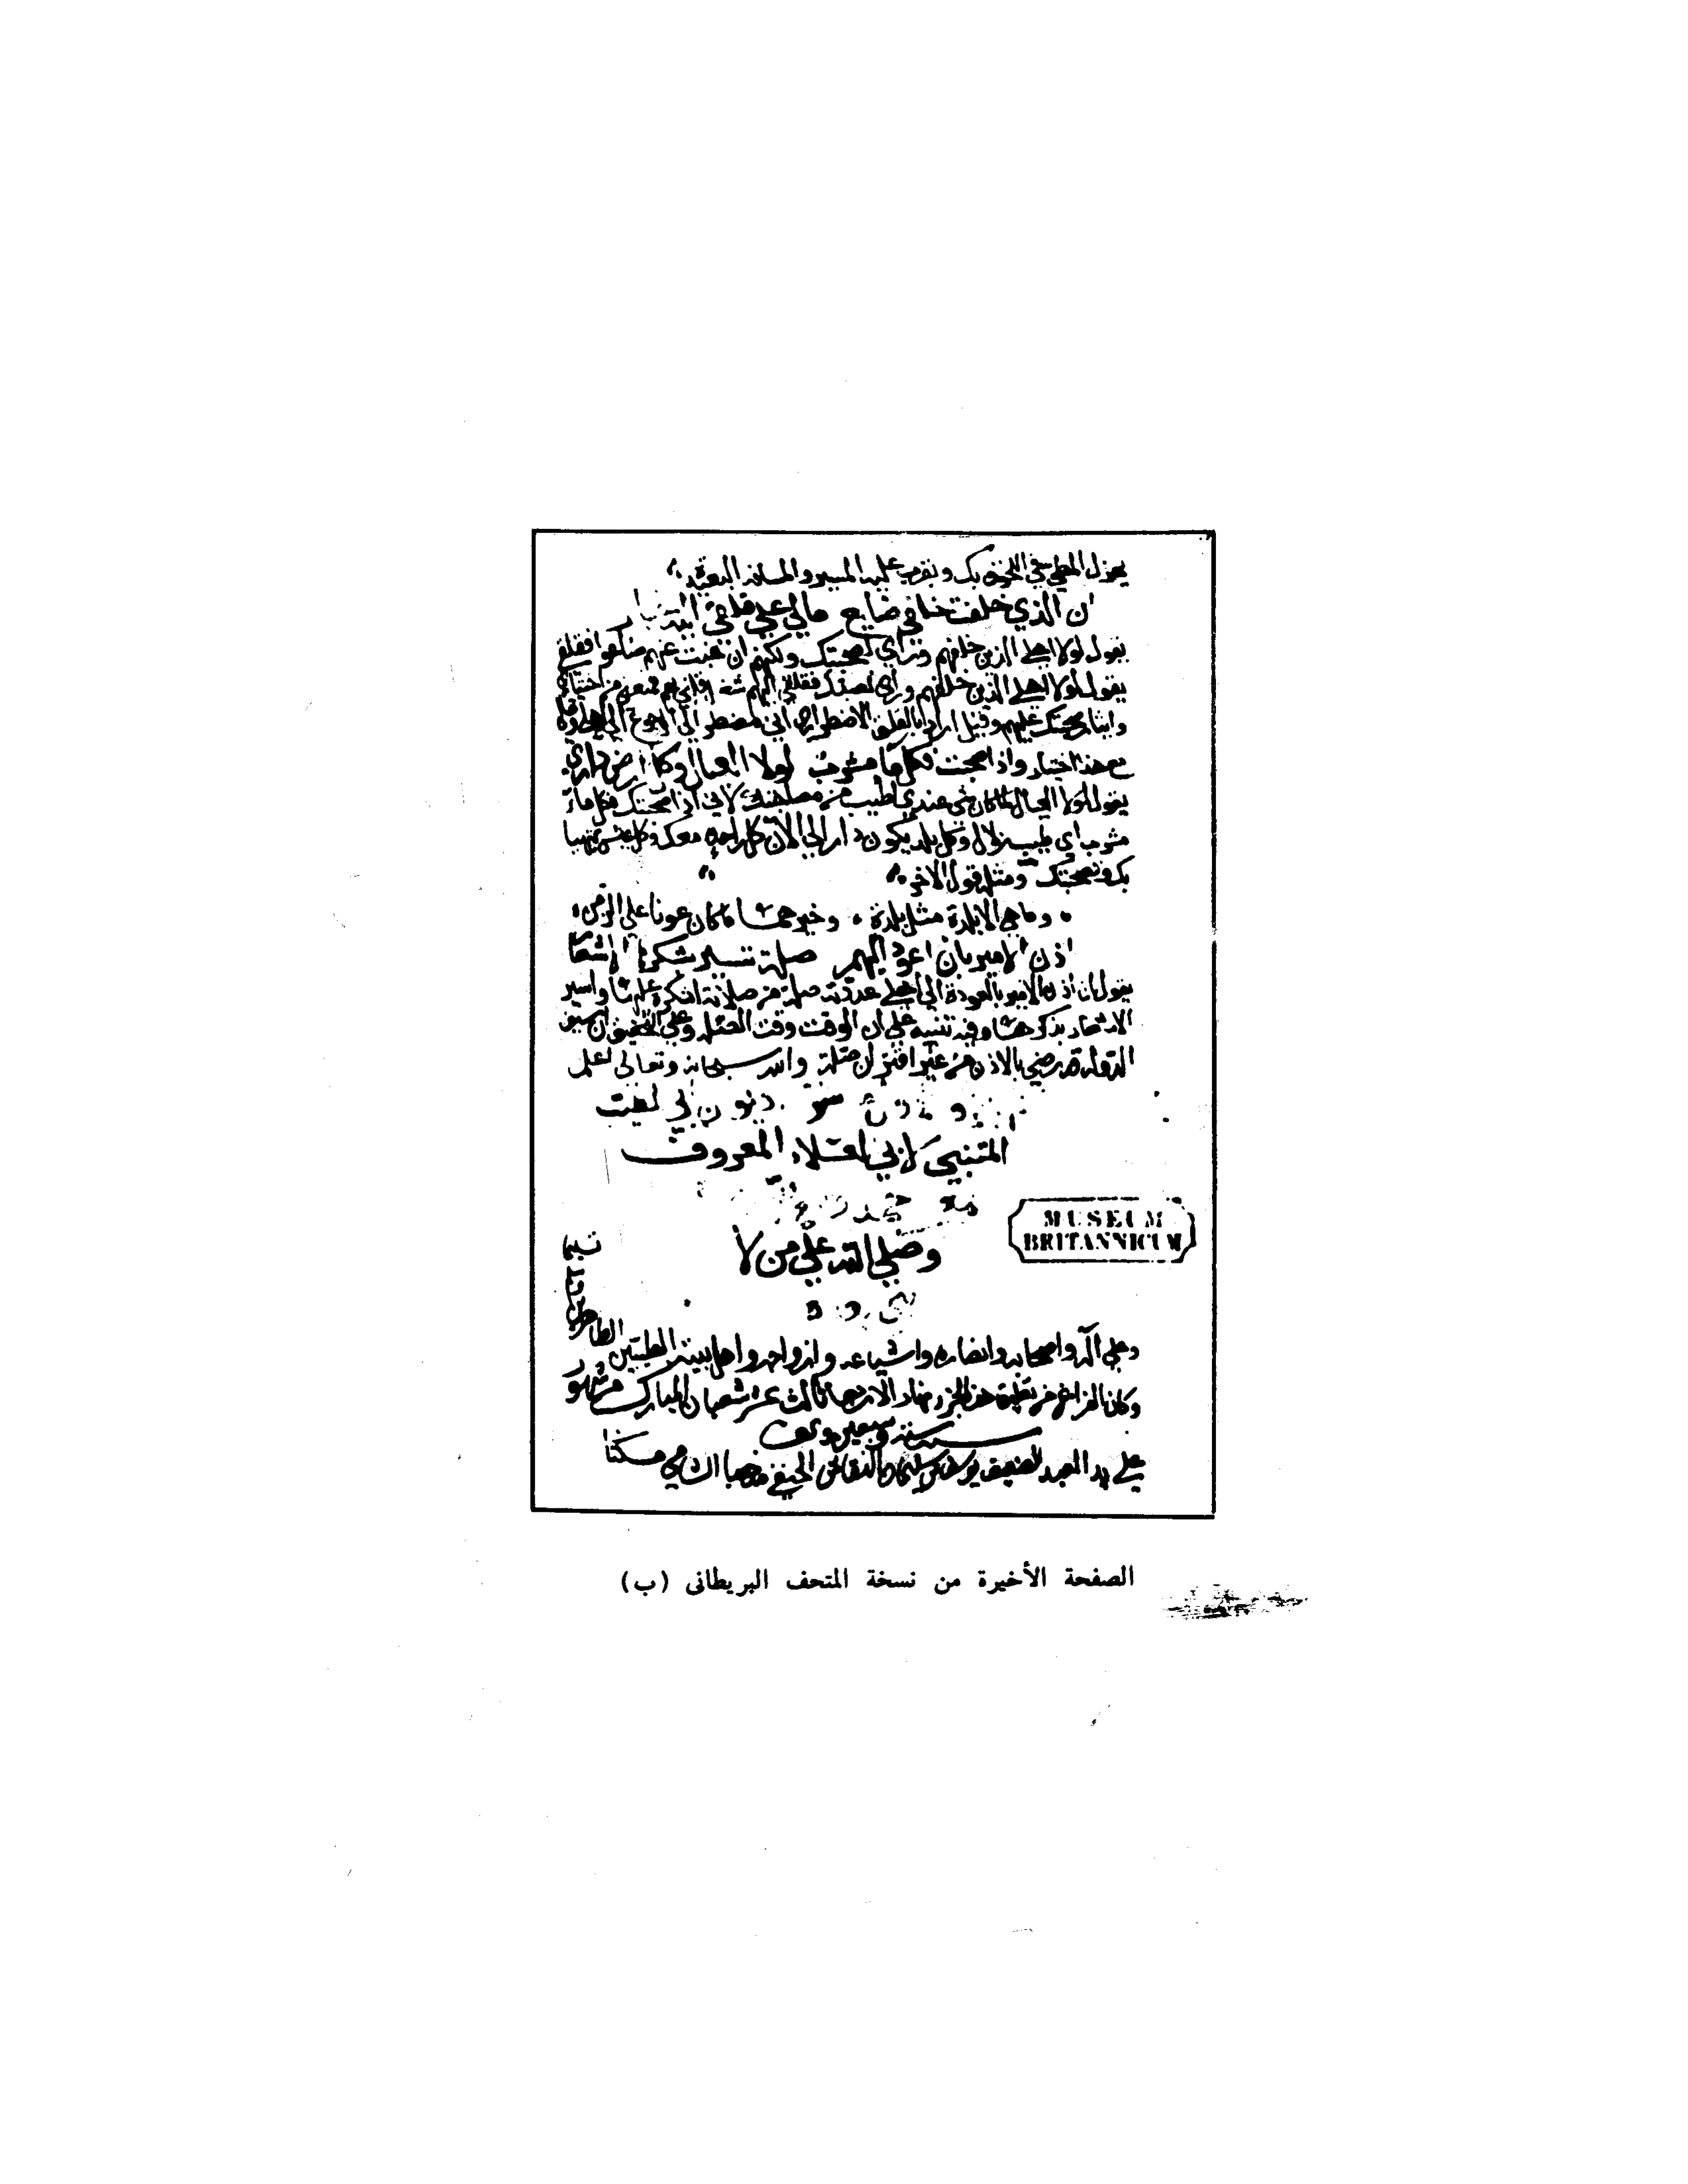 يهزل المطي في اللحوق بك ويقرب عليه المسير والمسافه البعيده
ان الذي خلفت خلفي ضايع مالي على قلقي اليه خيار
يقول لولا اهلي الذين خلفهم وراي لصحبتك ولكنهم ان غبت عنهم ضاعوا فقلقي
يقول لولا اهلي الذين خلفهم وراي فقلقي اليهم
وايثار صحبتك عليهم وقيل اراد بالقلق الاضطرار اي اني مضطر الى الرجوع الى اهلي
مع هذا اختيار واذا صحبت فكل ما مشرب لولا العيال وكل ارض دار
يقول لولا العيال لما كان شي عندي اطيب من لاني اذا صحبتك فكل ماء
مشرب اي طيب زلال وكل بلد يكون دار لي لان كل راحه معك وكل عيش
بك وبصحبتك ومثله قول الاخر
وما هي الا بلدة مثل بلدة وخيرهما ما كان عونا على الزمن
اذن الامير بان اعود اليهم صلة تسير شكرها الاشعار
يقول ان اذن الامير بالعودة الى اهلي عددته صلة من صلاته اشكره عليها واسير
الاشعار بذكرها وفيه تنبيه على ان الوقت وقت الصله وعلى
الدوله قد رضي بالاذن من غير اقتران صلة والله سبحانه وتعالى اعلم
ديوان ابي الطيب
المتنبي لابي العلاء المعروف
وصلى الله على من لا
نبي بعده
وعلى آله واصحابه وانصاره واشياعه وازواجه واهل بيته الطيبين الطاهرين
تسليما
وكان الفراغ من تعليق هذا الجزء نهار الاربعا ثالث عشر شعبان المبارك من شهور
سنة وسبعين والف
على يد العبد الضعيف يوسف الحنفي مذهبا الشامي مسكنا
MUSEUM
BRITANNICUM
الصفحة الأخيرة من نسخة المتحف البريطانى (ب)